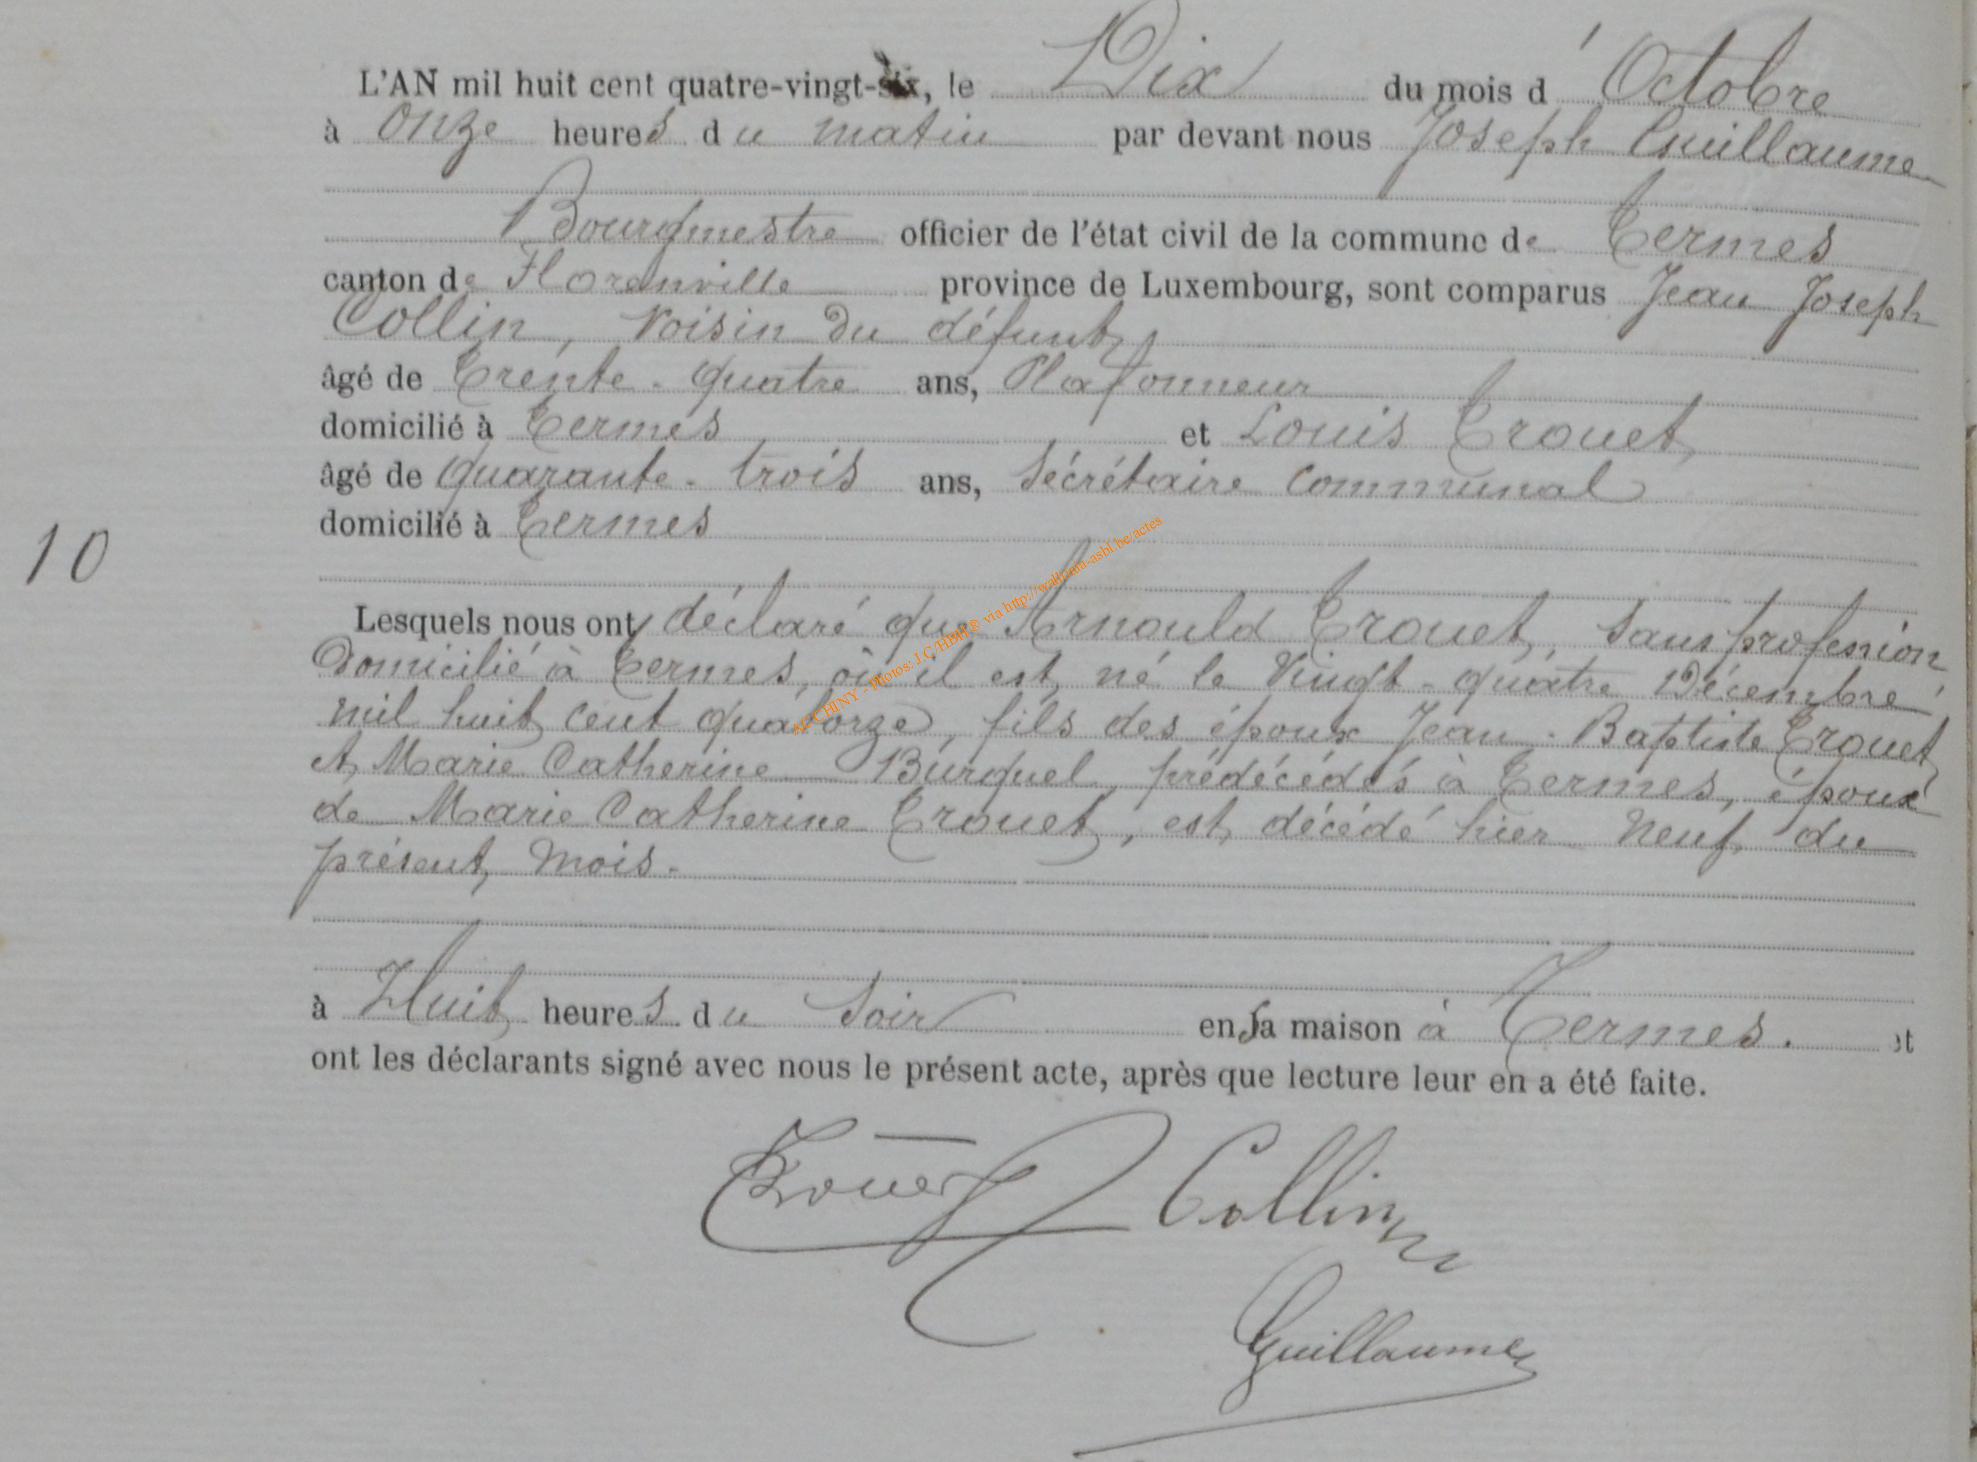 L'AN mil huit cent quatre-vingt-six, le Dix du mois d'Octobre
à onze heures du matin par devant nous Joseph Guillaume
Bourgmestre officier de l'état civil de la commune de Termes
canton de Florenville province de Luxembourg, sont comparus Jean Joseph
Collin, voisin du défunt,
âgé de trente-quatre ans, Plafonneur
domicilié à Termes et Louis Trouet,
âgé de quarante-trois ans, Sécrétaire communal
domicilié à Termes
10
Lesquels nous ont déclaré que Arnould Trouet, sans profession
Domicilié à Termes, où il est né le vingt-quatre Décembre
mil huit cent quatorze, fils des époux Jean-Baptiste Trouet
et Marie Catherine Burquel, prédécédés à Termes, époux
de Marie Catherine Trouet, est décédé hier neuf du
présent mois.
à Huit heures du soir en sa maison à Termes. et
ont les déclarants signé avec nous le présent acte, après que lecture leur en a été faite.
Trouet Collin
Guillaume
LUCCHINY - Photos: J.C HBH® via http://wallonia-asbl.be/actes